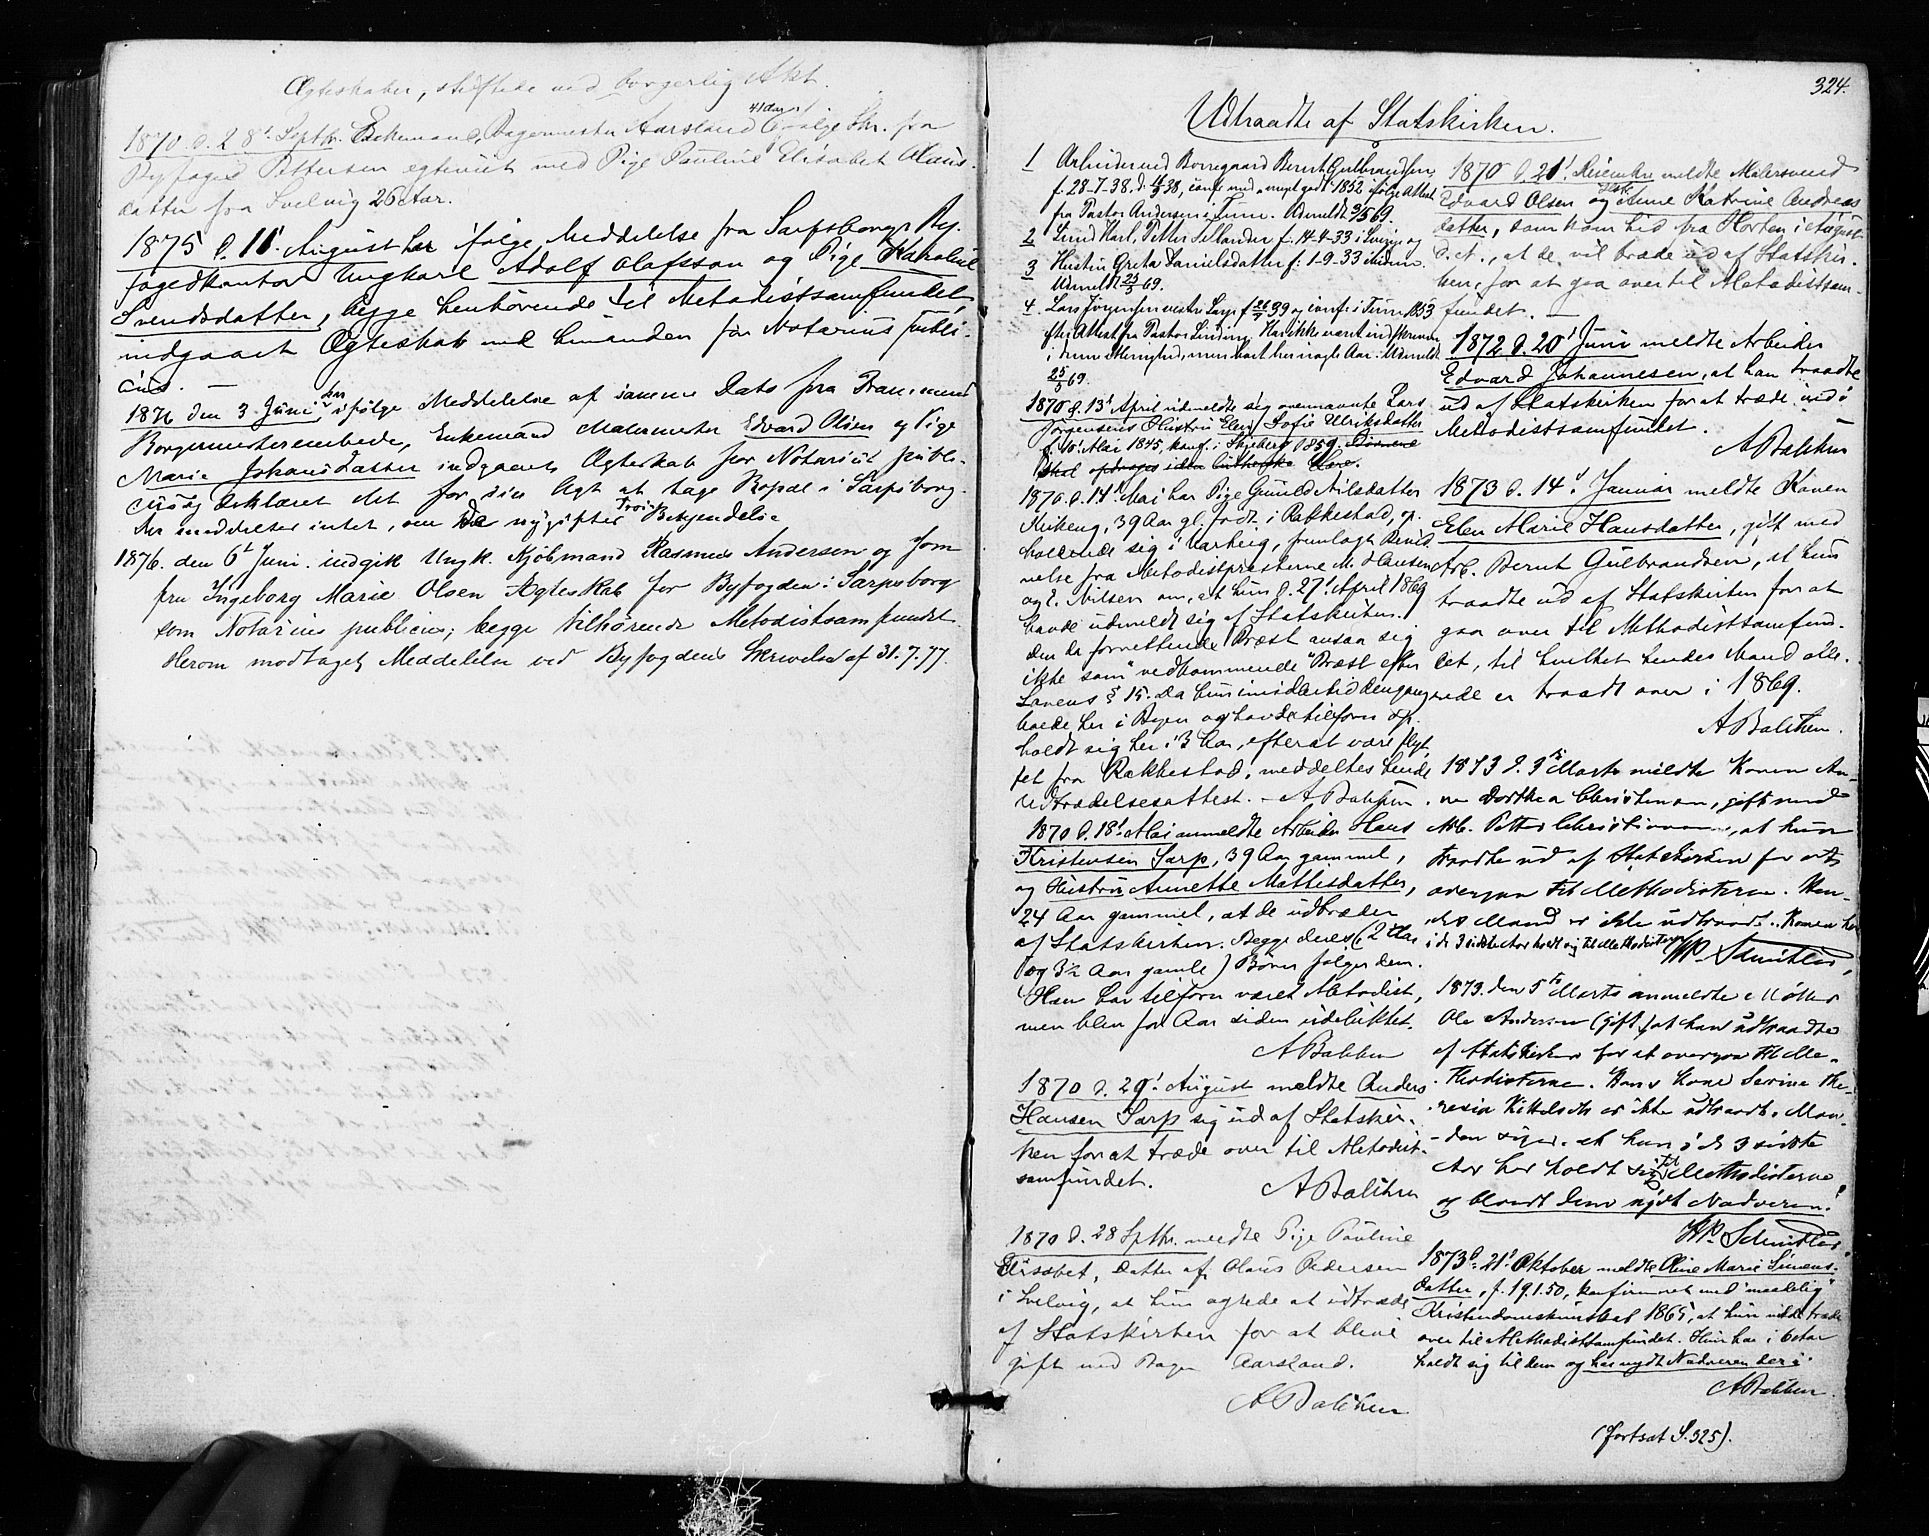 Ægteskaber, stiftede ved borgerlig Akt.
41 Aar
1870 d. 28' Septbr. Enkemand, Bagermester Aarsland ifølge Skr. fra
Byfoged Pettersen egteviet med Pige Pauline Elisabet Olaus-
datter fra Svelvig 26 Aar.
1875 d. 11' August har ifølge Meddelelse fra Sarpsborgs By-
fogedkontor Ungkarl Adolf Olafsson og Pige Karoline
Svendsdatter, begge henhørende til Metodistsamfundet,
indgaaet Ægteskab med hinanden for Notarius publi-
cus. —
1876 den 3. Juni har ifølge Meddelelse af samme Dato fra
Borgermesterembede, Enkemand Malermester Edvard Olsen og Pige
Marie Johansdatter indgaaet Ægteskab for Notarius publi-
cus og erklæret det for sin Agt at tage Bopæl i Sarpsborg.
Der meddeles intet, om De nygiftes Troes Bekjendelse
1876. den 6' Juni. indgik Ungk. Kjøbmand Rasmus Andersen og Jom
fru Ingeborg Marie Olsen Ægteskab for Byfogden i Sarpsborg
som Notarius publicus; begge tilhørende Metodistsamfundet
Herom modtaget Meddelelse ved Byfogdens Skrivelse af 31.7.77.
324.
Udtraadte af Statskirken.
1 Arbinder ved Borregaard Bernt Gulbrandsen,
f. 28-7-38. d. 38, conf. med meget godt i 1852 ifølge Attest
fra Pastor Andersen i Tune. Udmeldt 9/5 69.
2 Karl Petter Sellander f. 14-4-33 i Sverige og
3 Hustru Greta Danielsdatter f. 1-9-33 ibidem.
Udmeldt 25/5 69.
4. Lars Jørgensen Sarp f. 39 og conf. i Tune 1853
efter Attest fra Pastor Sinding. Har ikke været indskreven
i denne Menighed, men boet her nogle Aar. Udmeldt
25/5 69.
1870 d. 13' April udmeldte sig ovennævnte Lars
Jørgensens Hustru Elen Sofie Ulriksdatter
f. 10' Mai 1845 konf. i Skjeberg 1859. Børnene
skal opdrages i den lutherske Lære.
1870. d. 14' Mai har Pige Gunild Nilsdatter
Kirkeng, 39 Aar gl. født i Rakkestad, op-
holdende sig i Varteig, fremlagt Bevid-
nelse fra Metodistpresterne M. Hansen
og E. Nilsen om, at hun d. 27' April 1869
havde udmeldt sig af Statskirken.
Den da forrettende Præst ansaa sig
ikke som "vedkommende" Præst efter
Lovens § 15. Da hun imidlertid dengang
boede her i Byen og havde tilforn op-
holdt sig her i 3 Aar, efter at være flyt-
tet fra Rakkestad, meddeltes hende
Udtrædelsesattest. — A Bakken
1870 d. 18' Mai anmeldte Arbeider Hans
Kristensen Sarp, 39 Aar gammel,
og Hustru Annette Mattisdatter,
24 Aar gammel, at de udtræder
af Statskirken. Begge deres (2 Aar
og 3½ Aar gamle) Børn følger dem.
Han har tilforn været Metodist,
men blev for Aar siden udelukket.
A Bakken
1870 d. 29' August meldte Anders
Hansen Sarp sig ud af Statskir-
ken for at træde over til Metodist-
samfundet.
A Bakken
1870 d. 28 Sptbr. meldte Pige Pauline
Elisabet, Datter af Olaus Pedersen
i Svelvig, at hun agtede at udtræde
af Statskirken for at blive
gift med Bager Aarsland.
A Bakken
1870 d. 21' Deiembre meldte Malersvend
Edvard Olsen og Anne Katrine Andreas
datter, som kom hid fra Horten i August
d. A., at de vil træde ud af Statskir-
ken, for at gaa over til Metodistsam-
fundet. —
1872 d. 20' Juni meldte Arbeider
Edvard Johannesen, at han traadte
ud af Statskirken for at træde ind i
Metodistsamfundet.
A Bakken
1873 d. 14' Januar meldte Konen
Elen Marie Hansdatter, gift med
Arb. Bernt Gulbrandsen, at hun
traadte ud af Statskirken for at
gaa over til Methodistsamfun-
det, til hvilket hendes Mand alle-
rede er traadt over i 1869.
A Bakken.
1873 d. 3die Marts meldte Konen An-
ne Dorthea Christensen, gift med
Arb. Petter Christiansen, at hun
traadte ud af Statskirken for at
overgaa til Methodisterne. Hen-
des Mand er ikke udtraadt. Konen har
i de 3 sidste Aar holdt sig til Methodisterne
HP. Schnitler,
1873. den 5te Marts anmeldte Møller
Ole Andersen (gift) at han udtraadte
af Statskirken for at overgaa til Me-
thodisterne. Hans Kone Serine The-
resia Kittelsen er ikke udtraadt. Man-
den siger, at han i de 3 sidste
Aar har holdt sig til Methodisterne
og blandt dem nydt Nadveren.
HP. Schnitler
1873 d. 21' Oktober meldte Oline Marie Simens-
datter, f. 19.1.50, konfirmeret med "maadelig"
Kristendomskundskab 1865, at hun vilde træde
over til Methodistsamfundet. Hun har i 6 Aar
holdt sig til dem og har nydt Nadveren der i
A Bakken.
(fortsat S. 325).